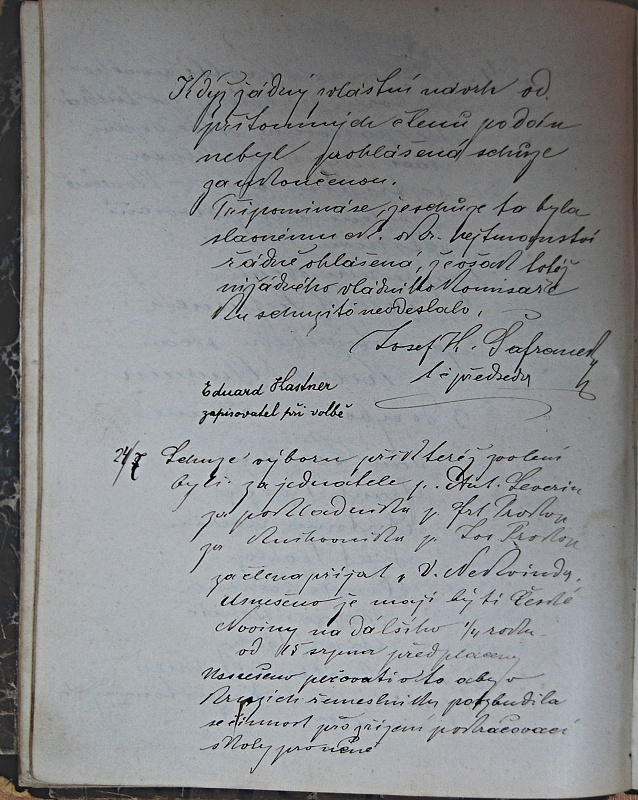 Když žádný zvláštní návrh od
přítomných členů podán
nebyl prohlášena schůze
za ukončenou.
Připomíná se, že schůze ta byla
slavnému ck. okr. hejtmanství
řádně ohlášená, že však totéž
nižádného vládního komisaře
ku schůzi té neodeslalo.
Josef H. Šafránek
t. č. předseda
Eduard Hastner
zapisovatel při volbě
24/7 Schuze výboru při kteréž zvoleni
byli: za jednatele p. Ant. Severin
za pokladníka p. Frt. Prokop
za knihovníka p. Jos Prokop
za člena přijat p. V. Nekvinda.
Usnešeno je mají býti České
Noviny na dalšího 1/4 roku
od 15 srpna předplaceny
Usnešeno pečovati o to aby v
kruzích řemeslníků pobudila
se činnost pro zřízení pokračovací
školy pro